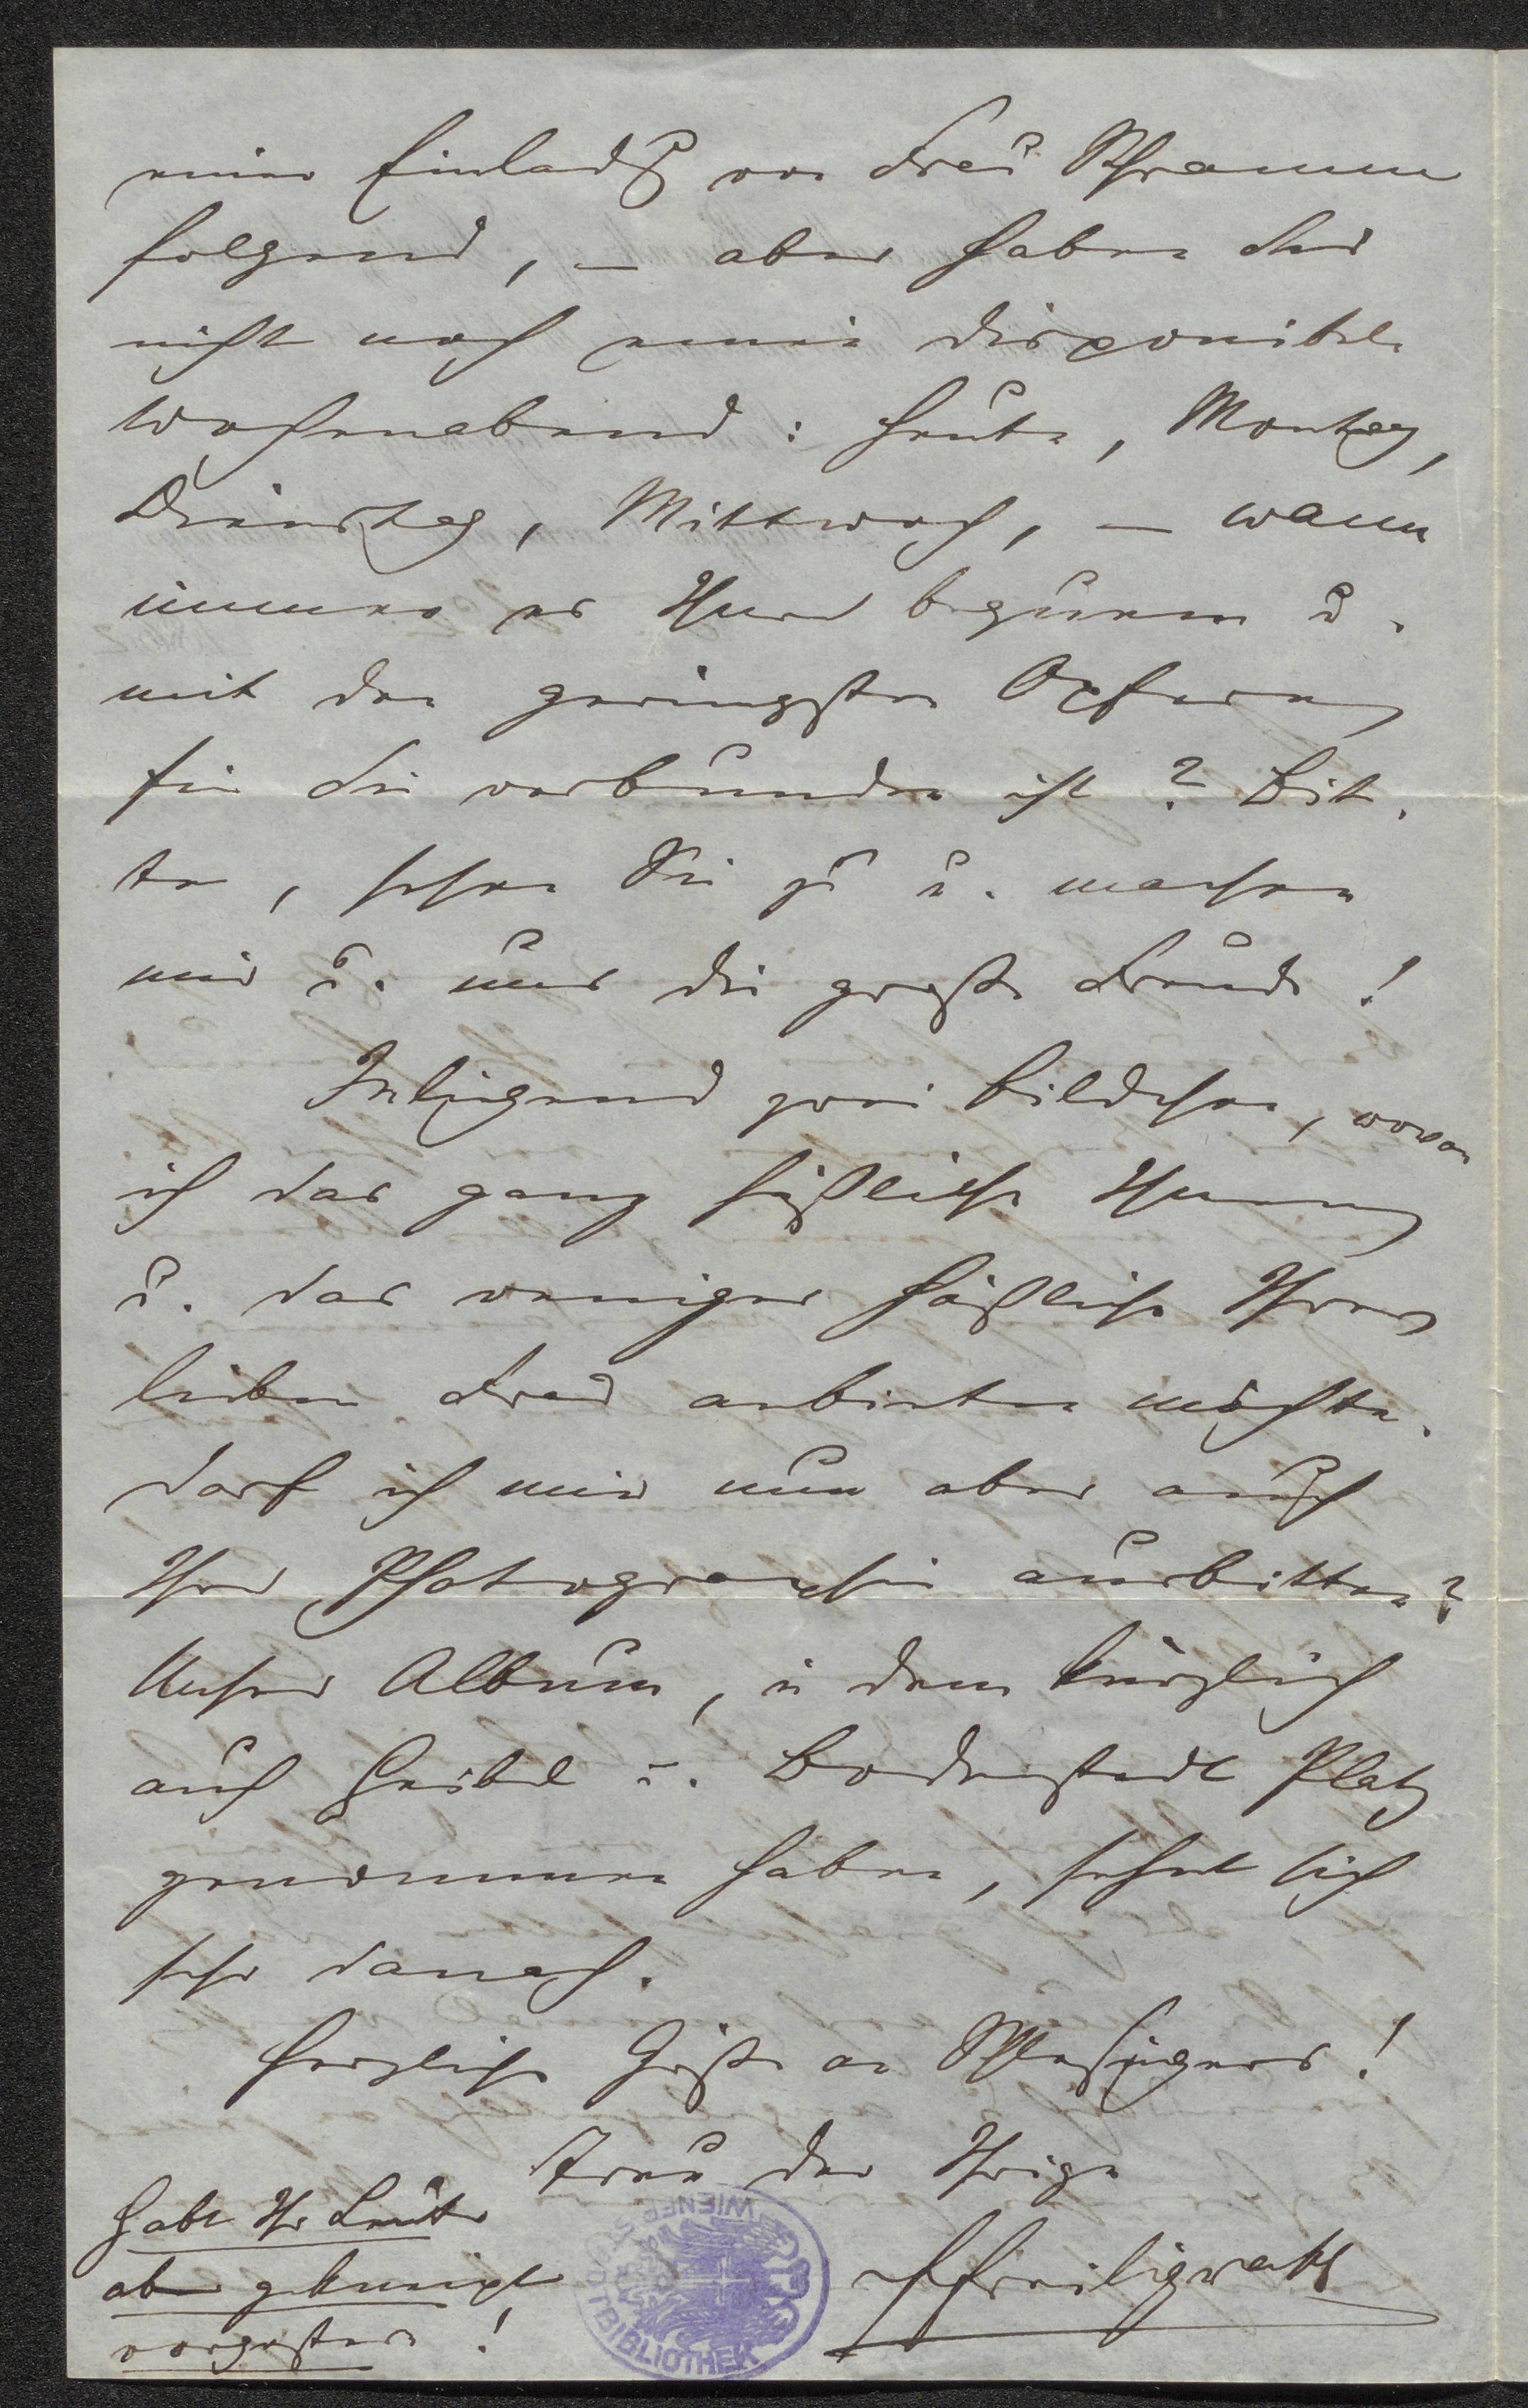 einer Einladg von Frau Schramm
folgend, – aber haben Sie
nicht noch einen disponiblen
Wochenabend: heute, Montag,
Dienstag, Mittwoch, – wann
immer es Ihnen bequem u.
mit den geringsten Opfern
für Sie verbunden ist? Bit-
te, sehen Sie zu u. machen
mir u. uns die große Freude!
Inliegend zwei Bildchen, wovon
ich das ganz häßliche Ihnen
u. das weniger häßliche Ihrer
lieben Frau anbieten möchte.
Darf ich mir nun aber auch
Ihre Photographie ausbitten?
Unser Album, in dem kürzlich
auch Geibel u. Bodenstedt Platz
genommen haben, sehnt sich
sehr danach.
Herzliche Grüße an Schlesingers!
Treu der Ihrige
FFreiligrath
Habt Ihr Leute
aber gekneipt
vorgestern!
WIENER STADTBIBLIOTHEK